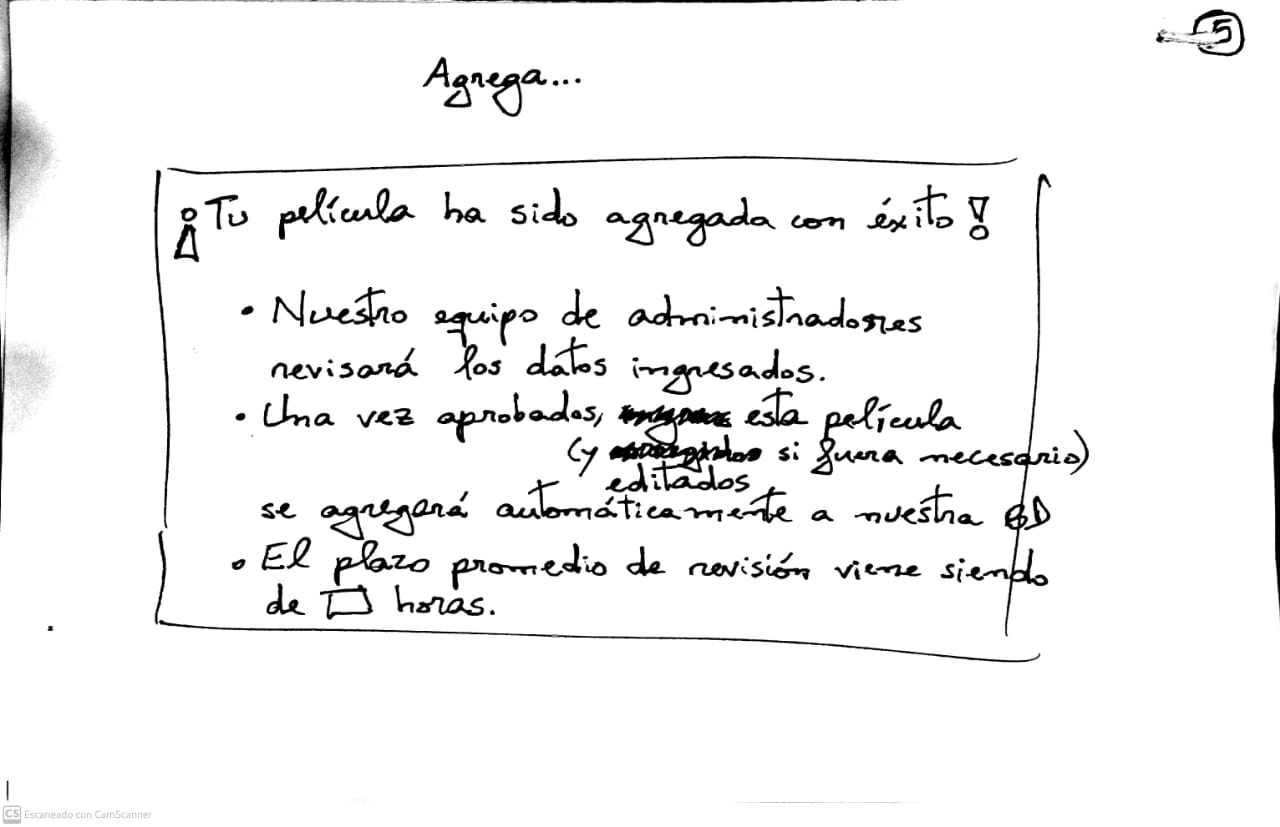 5
Agrega...
¡Tu película ha sido agregada con éxito!
• Nuestro equipo de administradores
revisará los datos ingresados.
• Una vez aprobados, esta película
(y si fuera necesario)
editados
se agregará automáticamente a nuestra BD
• El plazo promedio de revisión viene siendo
de horas.
CS Escaneado con CamScanner